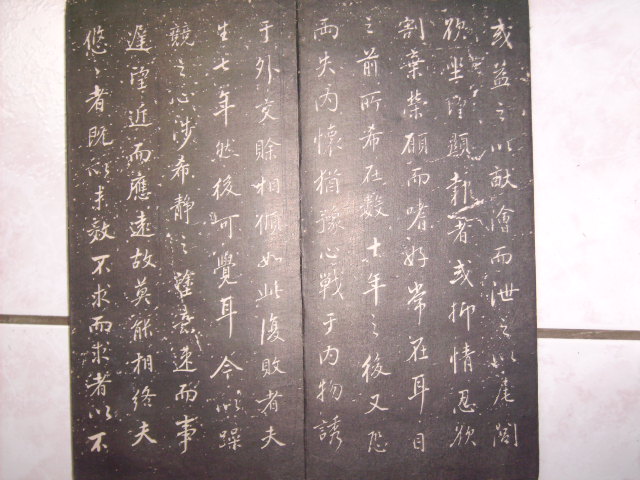 或益之以畎澮而泄之以尾閭
欲坐望顯報者或抑情忍欲
割棄榮願而嗜好常在耳目
之前所希在數十年之後又恐
兩失內懷猶豫心戰于內物誘
于外交賒相傾如此復敗者夫
生七年然後可覺耳今以躁
競之心涉希靜之塗意速而事
遲望近而應遠故莫能相終夫
悠々者既以未效不求而求者以不